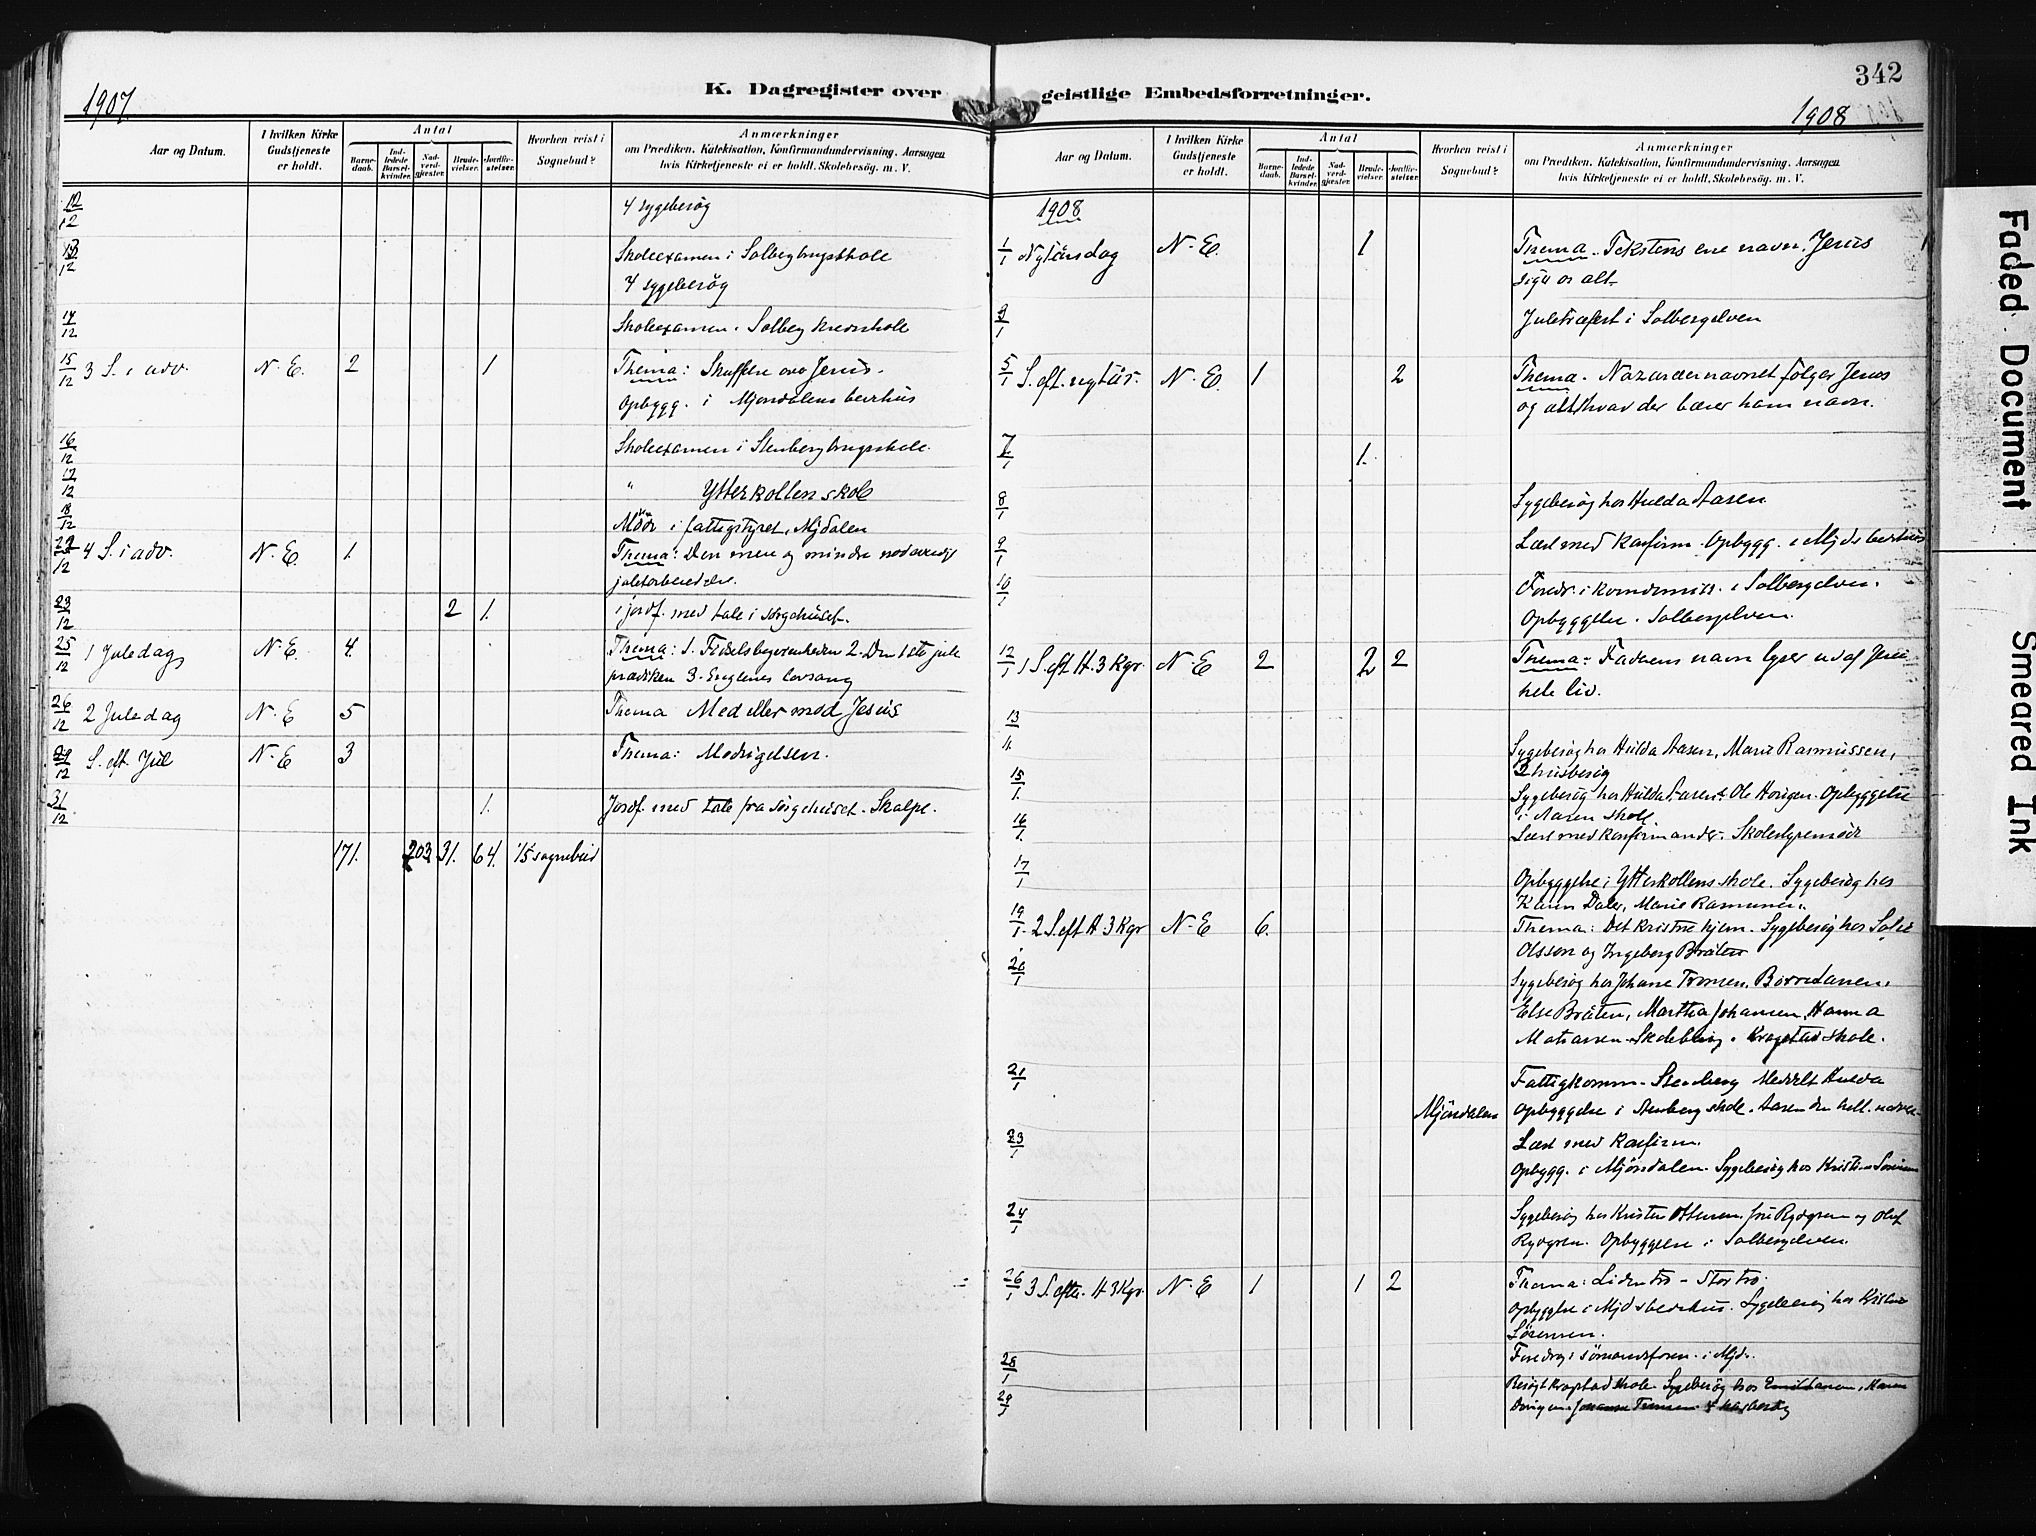 342
K. Dagregister over geistlige Embedsforretninger.
1907.
Aar og Datum.
I hvilken Kirke Gudstjeneste er holdt.
Antal
Barnedaab.
Indledede Barselkvinder.
Nadverdgjæster.
Brudevielser.
Jordfæstelser.
Hvorhen reist i Sognebud?
Anmærkninger
om Prædiken. Katekisation, Konfirmandundervisning. Aarsagen
hvis Kirketjeneste ei er holdt. Skolebesög. m. V.
12/12 4 sygebesøg
13/12 Skoleexamen i Solbergbrugsskole
4 sygebesøg
14/12 Skoleexamen i Solberg kredsskole
15/12 3 S. i adv. N. E. 2 1 Thema: Skuffelse over Jesus.
Opbygg. i Mjøndalens bedehus
16/12 Skoleexamen i Stenbergbrugsskole.
17/12 " Ytterkollens skole
18/12 Møde i fattigstyret, Mjdalen
22/12 4 S. i adv. N. E. 1. Thema: Den mere og mindre nødvendige
juleforberedelse.
23/12 2 1. 1 jordf. med tale i sørgehuset.
25/12 1 Juledag N. E. 4. Thema: 1. Fødselsbegivenheden 2. Den 1ste jule
prædiken 3. Englenes lovsang
26/12 2 Juledag N. E 5 Thema Med eller mod Jesus
29/12 S. eft. Jul N. E 3 Thema: Modsigelsen.
31/12 1. Jordf. med tale fra sørgehuset. Skalpe.
171. 203 31. 64. 15 sognebud
1908
Aar og Datum.
I hvilken Kirke Gudstjeneste er holdt.
Antal
Barnedaab.
Indledede Barselkvinder.
Nadverdgjæster.
Brudevielser.
Jordfæstelser.
Hvorhen reist i Sognebud?
Anmærkninger
om Prædiken. Katekisation, Konfirmandundervisning. Aarsagen
hvis Kirketjeneste ei er holdt, Skolebesög. m. V.
1908
1/1 Nytårsdag N. E. 1 Thema. Tekstens ene navn, Jesus
siger os alt.
3/1 Juletræfest i Solbergelven
5/1 S. eft. nytår. N. E. 1 2 Thema. Nazaræernavnet følger Jesus
og alt hvad der bærer hans navn.
7/1 1.
8/1 Sygebesøg hos Hulda Aasen
9/1 Læst med konfirm. Opbygg. i Mjds bedehus
10/1 Foredr. i Solbergelven.
Opbyggelse. Solbergelven.
12/1 1 S. eft H. 3 Kgr. N. E 2 2 2 Thema: Faderens navn lyser ud af Jesu
hele liv.
13
14. Sygebesøg hos Hulda Aasen, Marie Rasmussen,
2 husbesøg
15/1. Sygebesøg hos Hulda Aasen. Ole Horgen. Opbyggelse
i Aasen skole.
16/1. Læst med konfirmander. Skolestyremøde
17/1 Opbyggelse i Ytterkollens skole. Sygebesøg hos
Karen Daler, Marie Rasmussen.
19/1. 2 S. eft H. 3 Kgr N. E 6. Thema: Det kristne hjem. Sygebesøg hos Sofie
Olsson og Ingeborg Bråten
20/1 Sygebesøg hos Johane Tronsen, Børre Larsen,
Else Bråten, Martha Johansen, Hanna
Matiassen. Skolebesøg. Krogstad skole.
21/1 Fattigkomm. Stenberg Meddelt Hulda
Mjøndalen Opbyggelse i Stenberg skole. Aasen den hell. nadver
23/1 Læst med konfirm.
Opbygg. i Mjøndalen. Sygebesøg hos
24/1 Sygebesøg hos Kristen Ottersen, Rydgren og Oluf
Rydgren. Opbyggelse i Solbergelven.
26/1 3 S. efter H. 3 Kgr. N. E 1 1 2 Thema: Liden tro – Stor tro.
Opbyggelse i Mjds bedehus. Sygebesøg hos
Sørensen.
28/1 Foredrag i sømandsforen. i Mjd.
29/1 Besøgt Krogstad skole. Sygebesøg hos Emil Larsen, Maren
Horgen, Johanne Tronsen
Faded Document
Smeared Ink